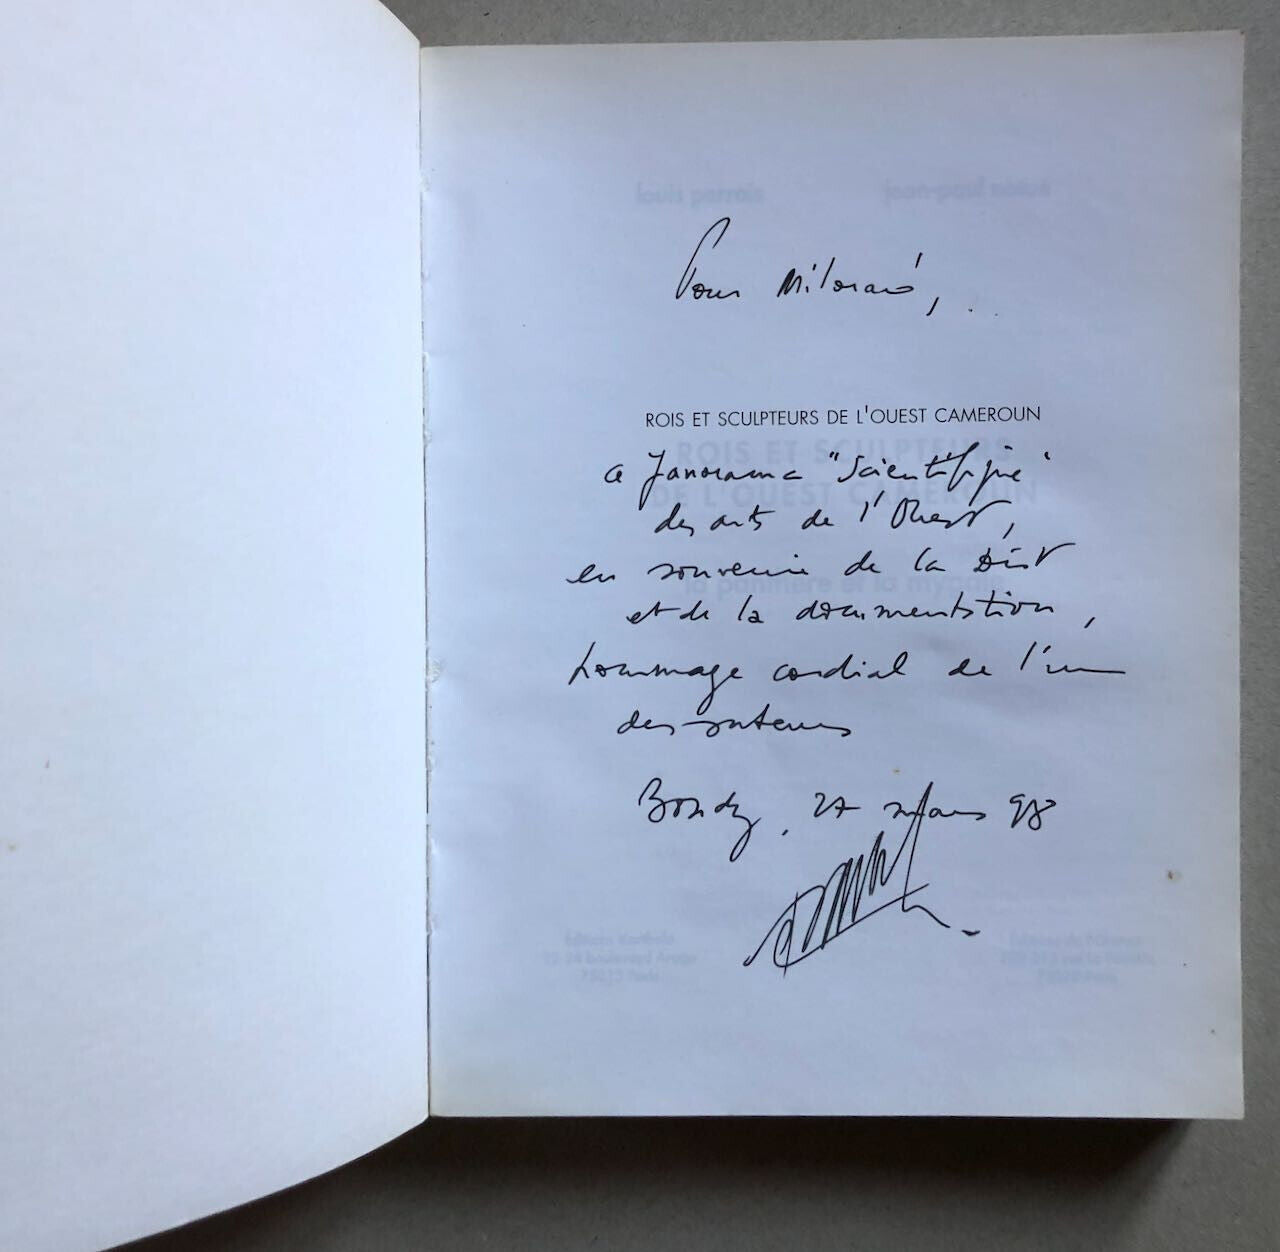 louis perrois
jean-paul notué
Pour Milorad,
ROIS ET SCULPTEURS DE L'OUEST CAMEROUN
ROIS ET SCULPTEURS
ce panorama "scientifique"
DE L'OUEST CAMEROUN
des arts de l'Ouest,
en souvenir de la Dist
la panthère et la mygale
et de la documentation,
hommage cordial de l'un
des auteurs
Bondy, 27 mars 98
Éditions Karthala
22-24 boulevard Arago
75013 Paris